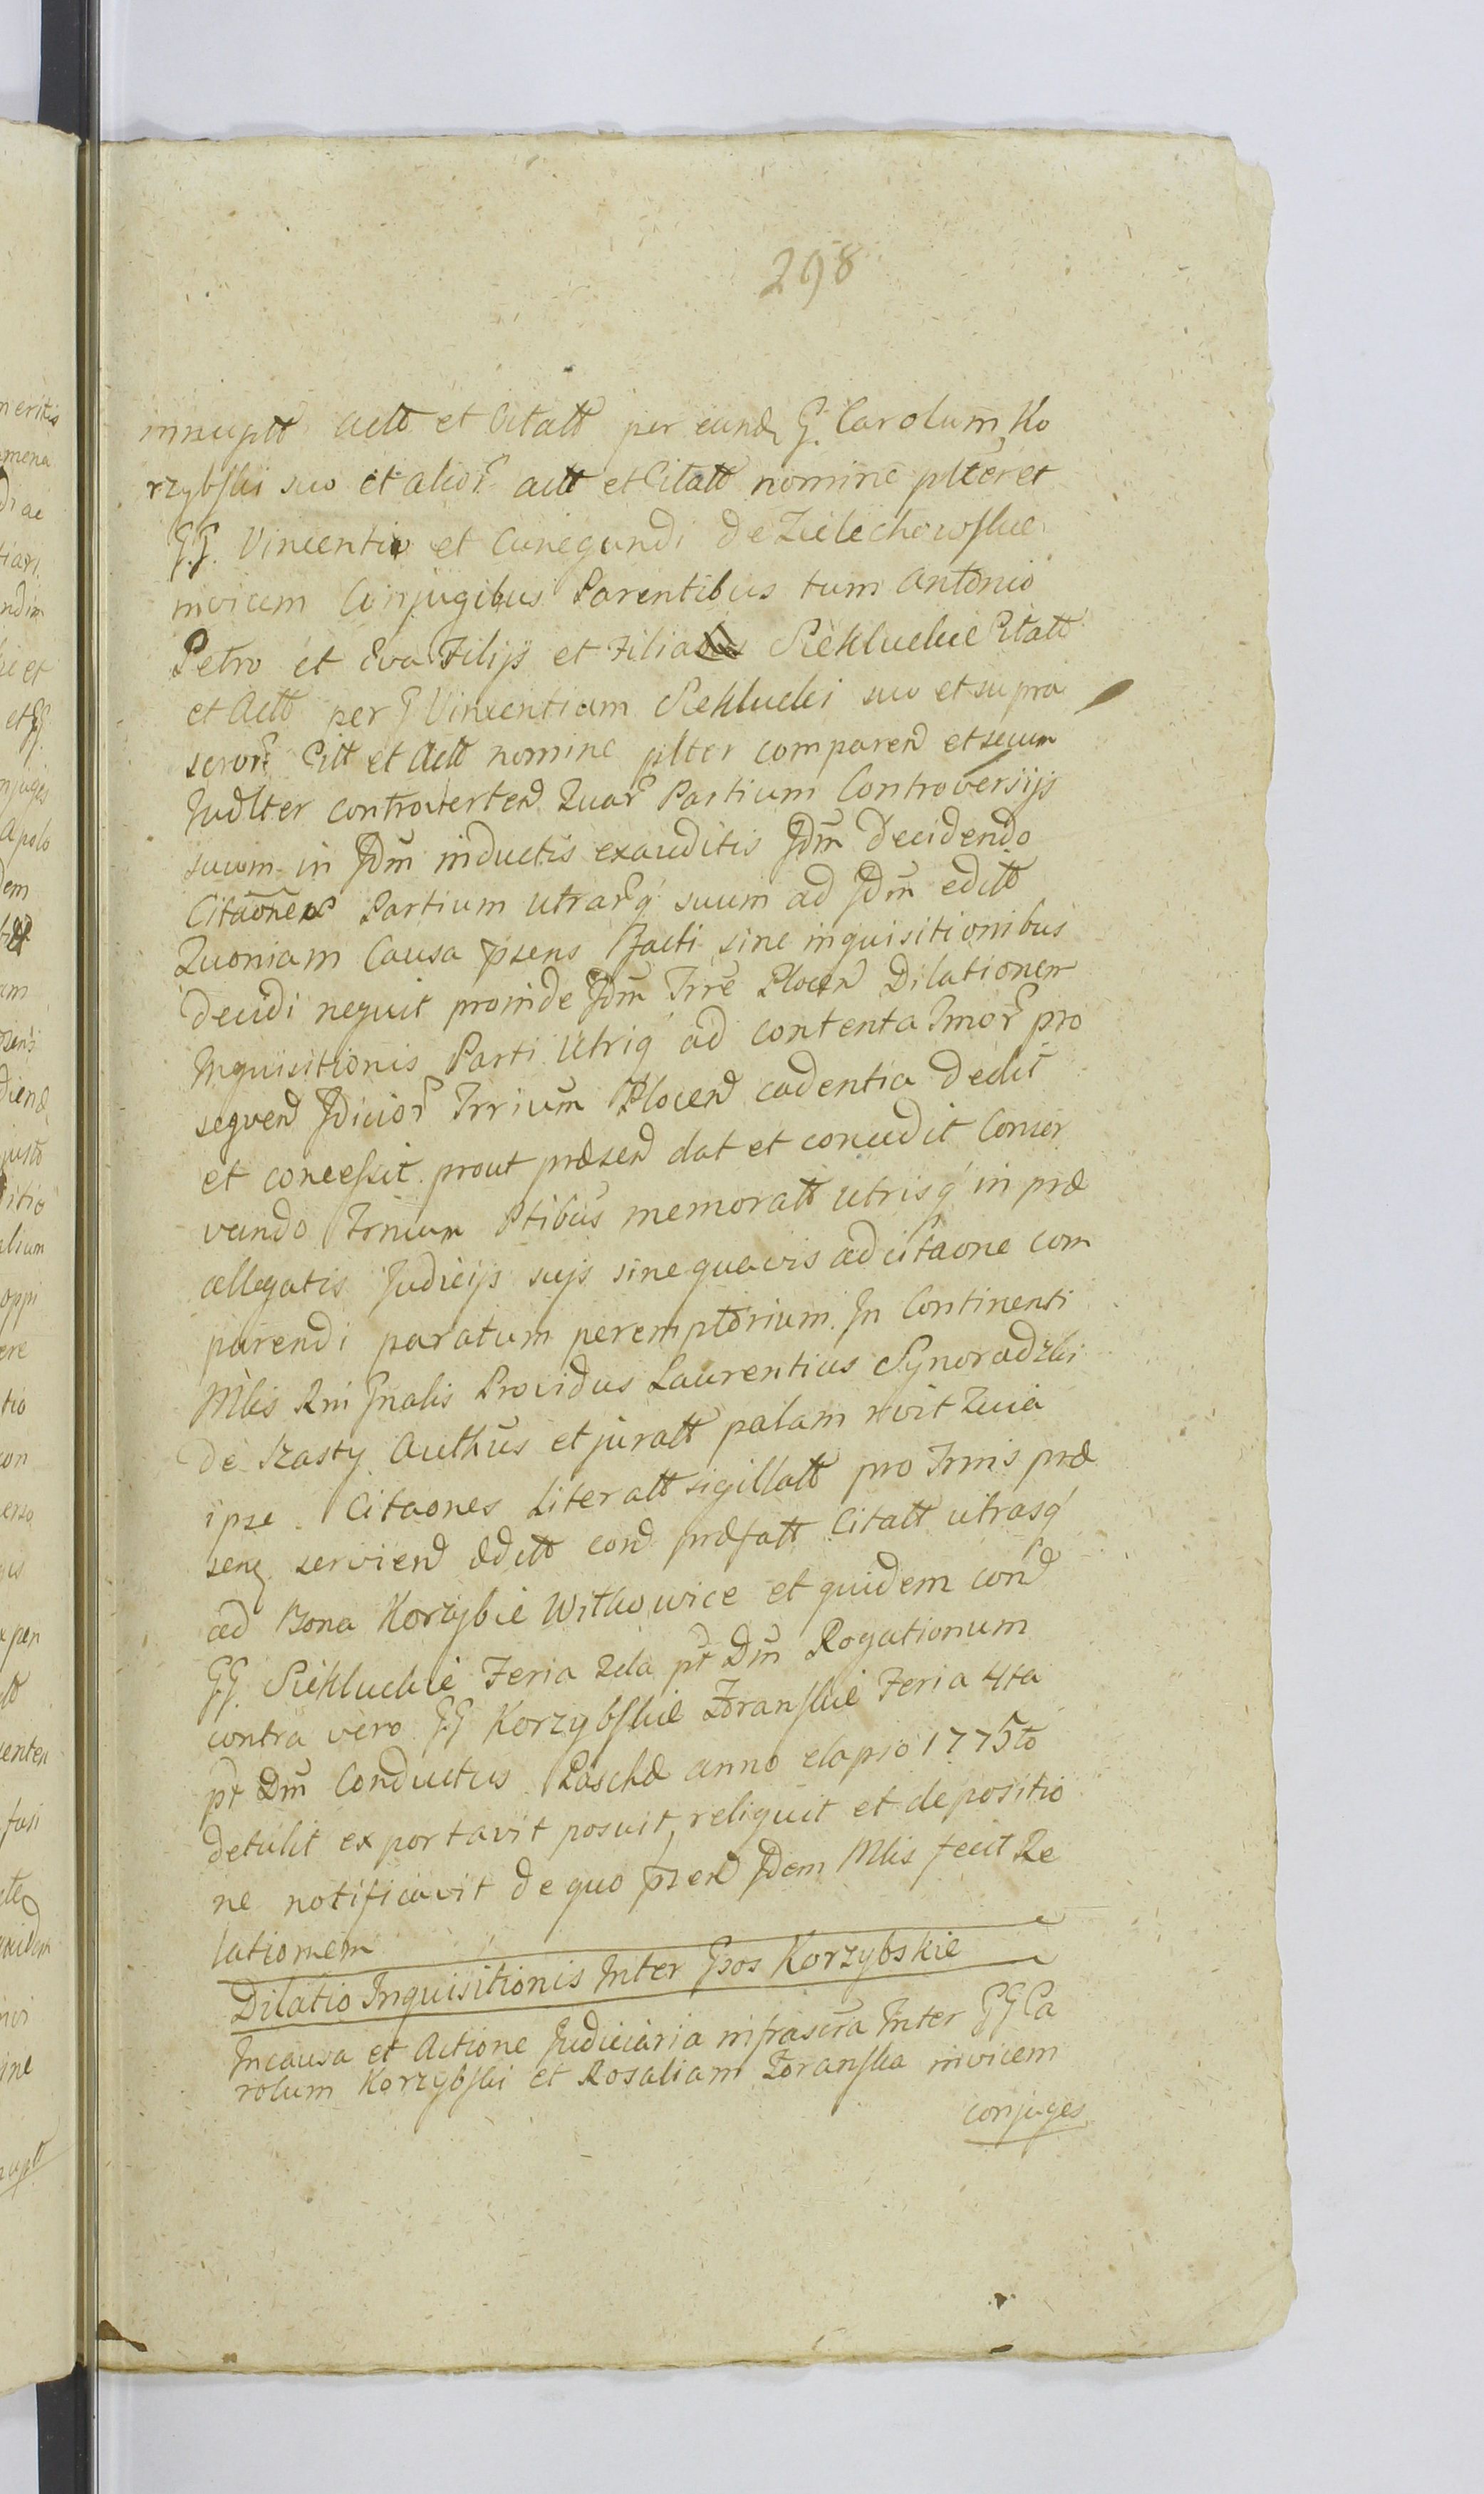 298
innuptt Actt et Citatt per eund G. Carolum Ko
rzybski suo et alior actt et Citatt nomine plter et
G.G. Vincentio et Cunegundi de Zielechowskie
invicem Conjugibus Parentibus tum Antonio
Petro et Eva Filijs et Filia Siekluckie Citatt
et Actt per G Vincentium Sieklucki suo et supra
scror Citt et Actt nomine plter comparen et secum
Judlter controverten Quar Partium Controversijs
suum in Jdm inductis exauditis Jdm Decidendo
Citaones Partium utrarq suum ad Jdm editt
Quoniam Causa psens Facti sine inquisitionibus
decidi nequit proinde Jdm Trre Plocen Dilationem
Inquisitionis Parti Utriq ad contenta Tmor pro
sequen Jdicior Trrium Plocen cadentia Dedit
et concessit prout præsen dat et concedit Conser
vando Trnum Ptibus memoratt utrisq in præ
allegatis Judicijs suis sine quavis adcitaone com
parendi paratum peremptorium. In Continenti
Mlis Rni Gnalis Providus Laurentius Synoradzki
de Szasty Authus et juratt palam rvit Quia
ipse Citaones Literatt sigillatt pro Trnis præ
sen servien Editt con præfatt Citatt utrasq
ad Bona Korzybie Witkowice et quidem con
GG. Siekluckie Feria 2da pt Dm Rogationum
contra vero GG Korzybskie Zoranskie Feria 4ta
pt Dm Conductus Paschæ anno elapso 1775to
detulit exportavit posuit, reliquit et depositio
ne notificavit de quo psen Jdem Mlis fecit Re
lationem
Dilatio Inquisitionis Inter Gsos Korzybskie
In causa et Actione Judiciaria infrascra Inter GG Ca
rolum Korzybski et Rosaliam Zoranska invicem
conjuges